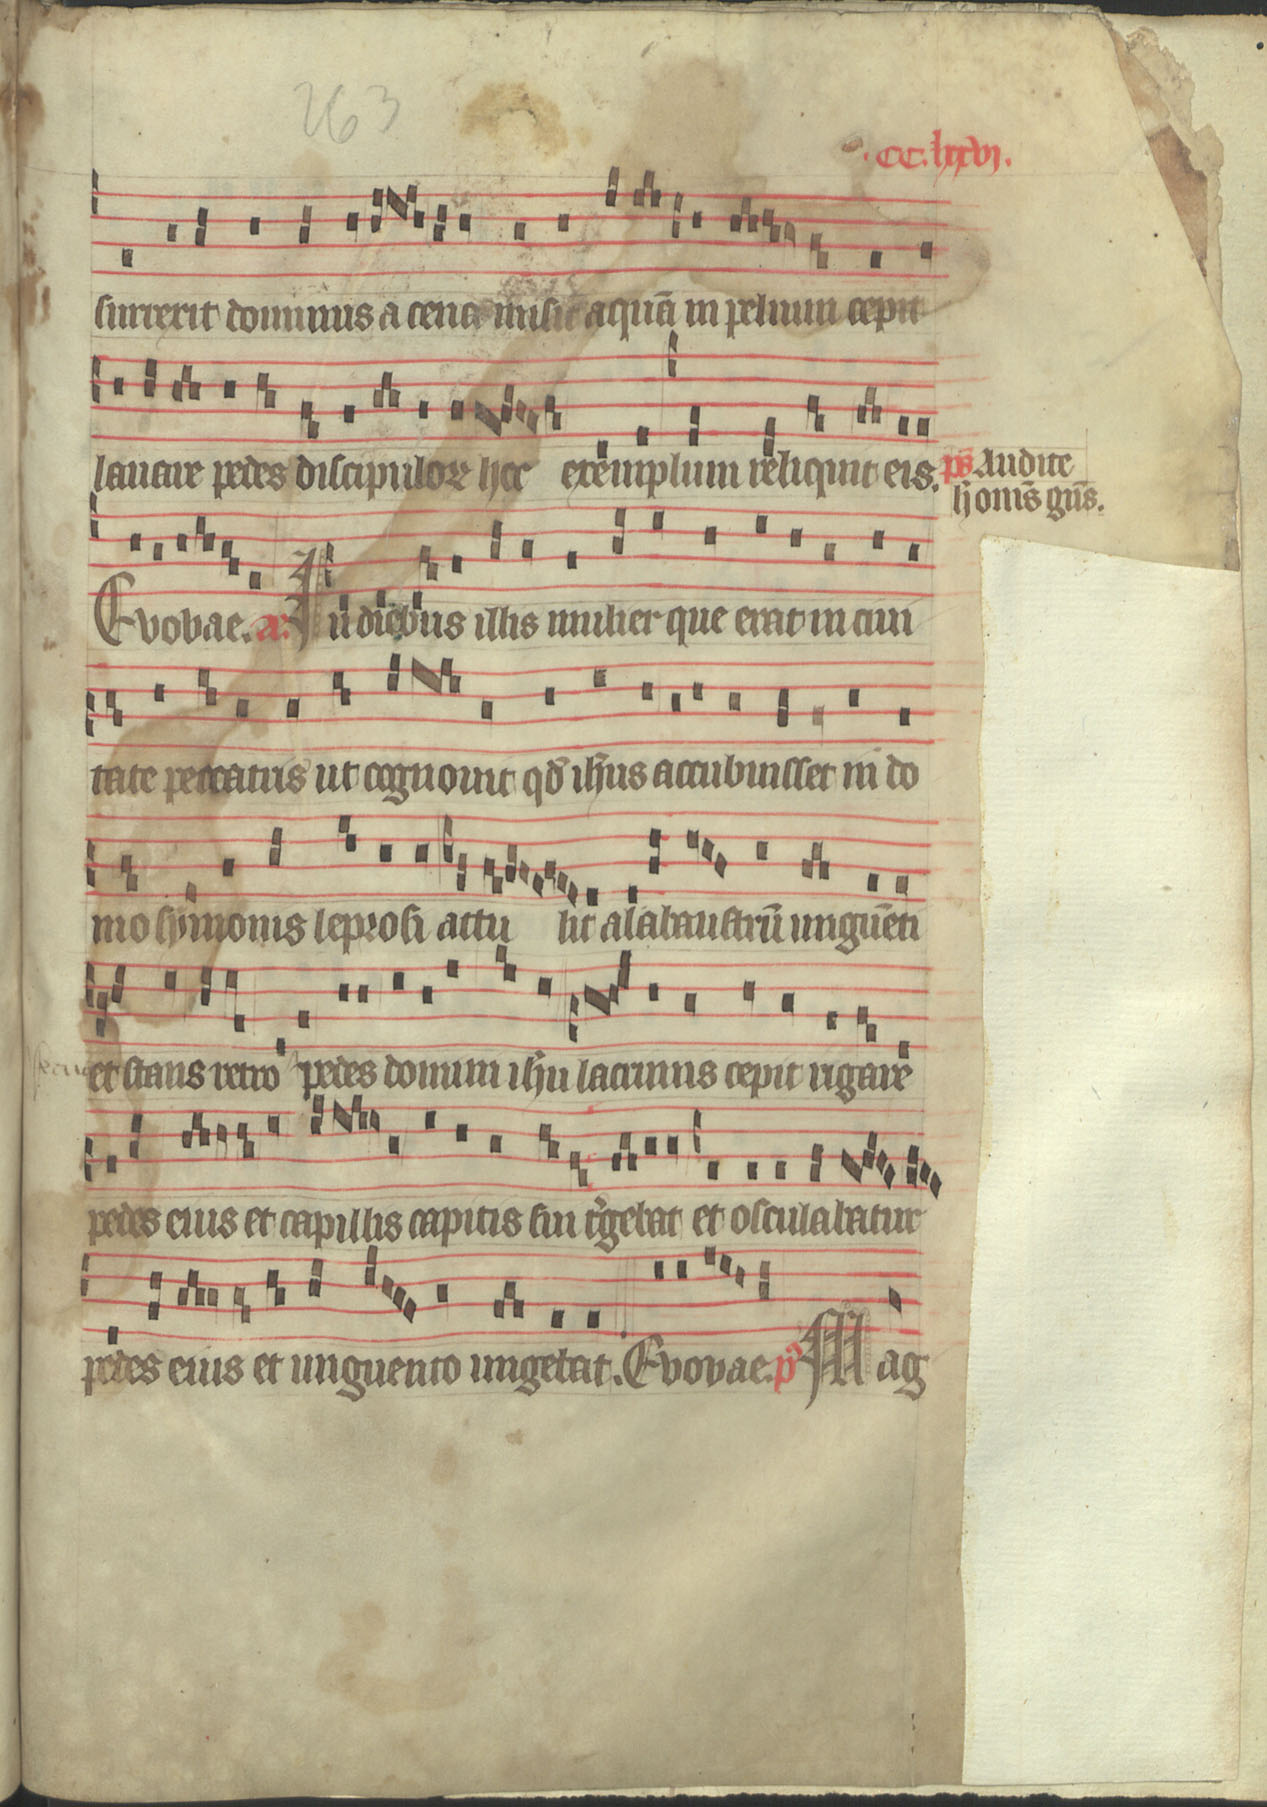 263
·cc·lxxvi·
surrexit dominus a cena misit aquā in peluim cepit
lauare pedes discipuloꝝ hoc exemplum reliquit eis. ps̄ Audite
h̄ om̄s gn̄s.
Evovae. a. In diebus illis mulier que erat in ciui
tate peccatrix ut cognouit qd̄ ih̄us accubuisset in do
mo symonis leprosi attu lit alabaustrū unguēti
et stans retro pedes domini ih̄u lacrimis cepit rigare
pedes eius et capillis capitis sui t̓gebat et osculabatur
pedes eius et unguento ungebat. Evovae. p̄ Mag